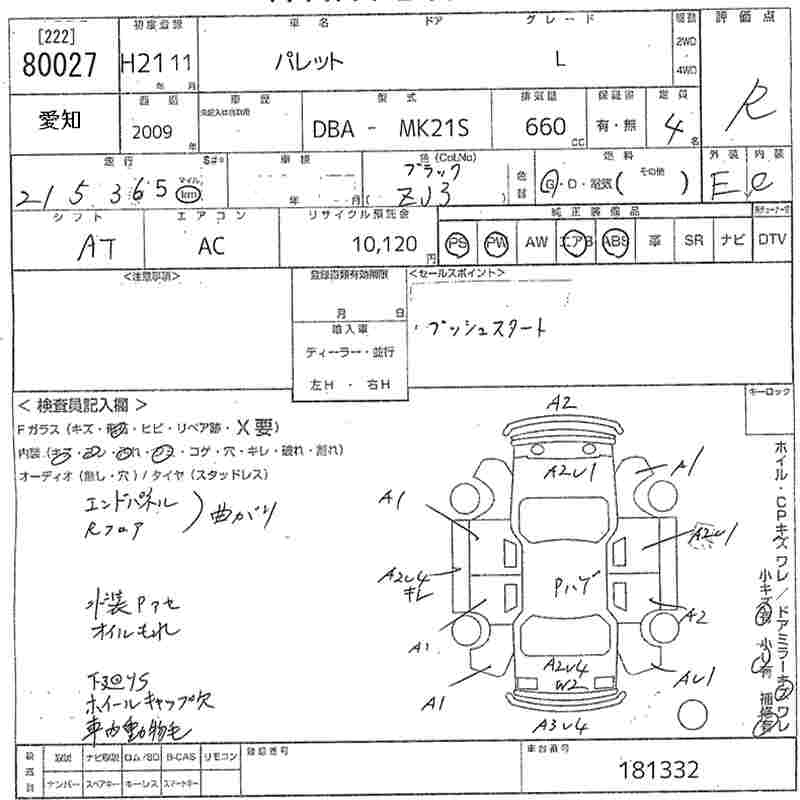 [222]
80027
初度登録
H21 11
年 月
車名
パレット
ドア
グレード
L
駆動
2WD
4WD
評価点
R
愛知
2009
年
車歴
型式
DBA - MK21S
排気量
660
CC
保証書
有・無
定員
4
名
走行
215365
マイル
km
車検
年 月
色(Col.No)
ブラック
ZJ3
色替
燃料
G・D・混気( その他 )
外装
E
内装
シフト
AT
エアコン
AC
リサイクル預託金
10,120
円
純正装備品
PS
PW
AW
エアB
ABS
革
SR
ナビ
DTV
<注意事項>
登録書類有効期限
月 日
輸入車
ディーラー・並行
左H・右H
<セールスポイント>
・プッシュスタート
<検査員記入欄>
キーロック
Fガラス(キズ・飛石・ヒビ・リペア跡・X要)
内装(キズ・コゲ・穴・キレ・破れ・割れ)
オーディオ(無し・穴)/タイヤ(スタッドレス)
エンドパネル
Rフロア
曲がり
外装Pアセ
オイルもれ
下廻サS
ホイールキャップ欠
車内動物毛
A2
A2U1
A1
A1
A2U1
A2U4
キレ
Pハゲ
A1
A2
A2U4
W2
A1
AU1
A3U4
ホイル・CPキズワレ/ドアミラーキズワレ
小キズ有 小U有 補修有
取説
ナビ取説
ロム/SD
B-CAS
リモコン
ナンバー
スペアキー
キーレス
スマートキー
登録番号
車台番号
181332